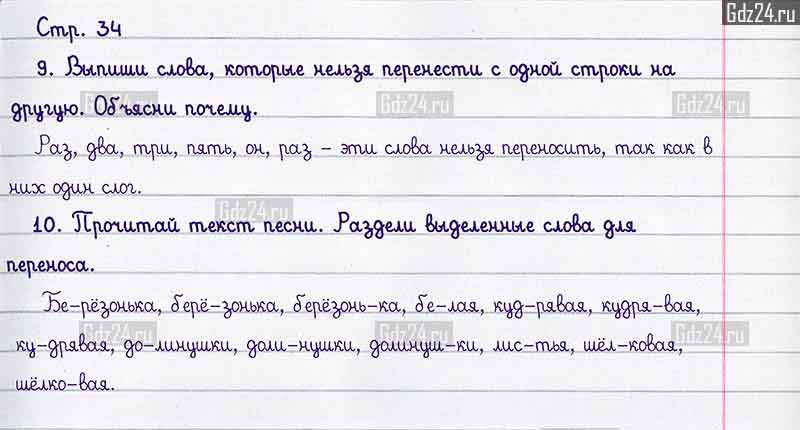 Gdz24.ru
Стр. 34
9. Выпиши слова, которые нельзя перенести с одной строки на
другую. Объясни почему.
Gdz24.ru Gdz24.ru Gdz24.ru
Раз, два, три, пять, он, раз – эти слова нельзя переносить, так как в
них один слог.
Gdz24.ru
10. Прочитай текст песни. Раздели выделенные слова для
переноса.
Бе-рёзонька, берё-зонька, берёзонь-ка, бе-лая, куд-рявая, кудря-вая,
Gdz24.ru Gdz24.ru Gdz24.ru
ку-дрявая, до-линушки, доли-нушки, долинуш-ки, лис-тья, шёл-ковая,
шёлко-вая.